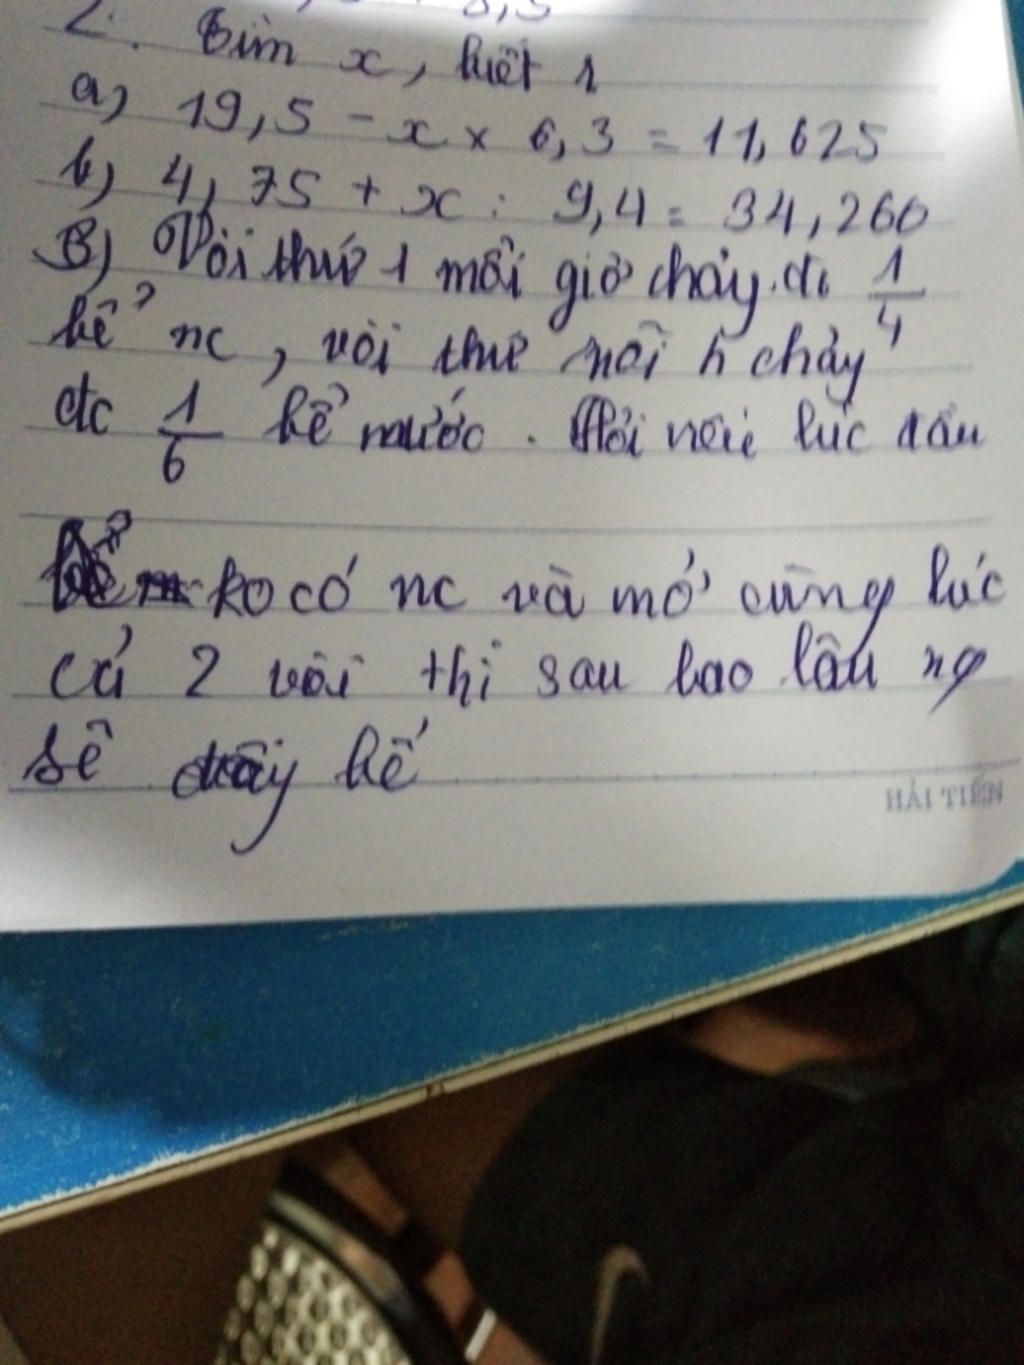 2. Tìm x, biết
a) 19,5 - x × 6,3 = 11,625
b) 4,75 + x : 9,4 = 34,260
3) Vòi thứ 1 mỗi giờ chảy đc 1/4
bể nc, vòi thứ mỗi h chảy
đc 1/6 bể nước. Hỏi nếu lúc đầu
ko có nc và mở cùng lúc
cả 2 vòi thì sau bao lâu
sẽ đầy bể
HẢI TIẾN